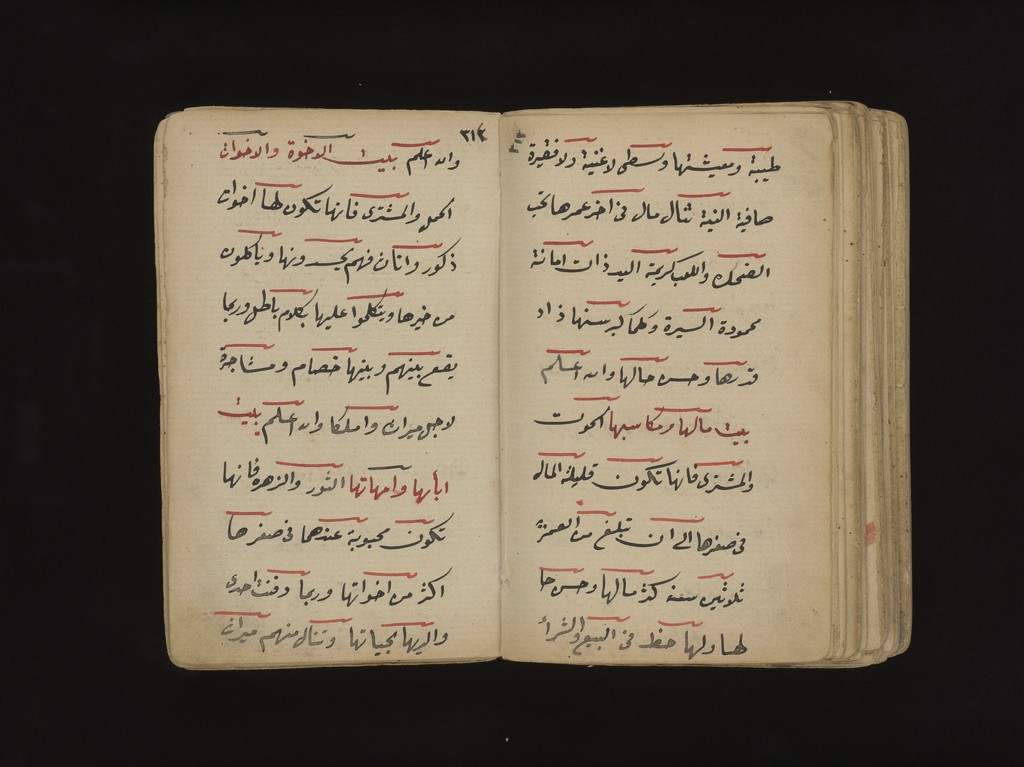 طيبة ومعيشتها وسطى لا غنية ولا فقيرة
صافية النية تنال مال فى اخر عمرها تحب
الضحك واللعب كريمة اليد ذات امانة
محمودة السيرة وكلما كبر سنها زاد
قدرها وحسن حالها والله اعلم
بيت مالها ومكاسبها الحوت
والمشترى فانها تكون قليلة المال
فى صغرها الى ان تبلغ من العمر
ثلاثين سنة كثر مالها وحسن حا
لها ولها حظ فى البيع والشرأ
٣١٤
والله اعلم بيت الاخوة والاخوات
الحمل والمشترى فانها تكون لها اخوات
ذكور واناث فهم يحسدونها وياكلون
من خيرها ويتكلموا عليها بكلام باطل وربما
يقع بينهم وبينها خصام ومشاجرة
لاجل ميراث واملاكا والله اعلم بيت
ابأنها وامهاتها الثور والزهره فانها
تكون محبوبة عندهما فى صغرها
اكثر من اخواتها وربما دفنت احدى
والديها بحياتها وتنال منهم ميراث